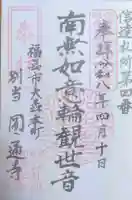 信達札所第四番
奉拝 令和八年四月十日
南無如意輪観世音
福島市大森本町
別当 圓通寺